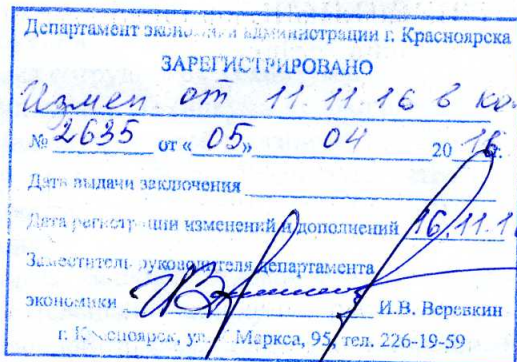 Департамент экономики администрации г. Красноярска
ЗАРЕГИСТРИРОВАНО
Измен от 11.11.16 в ко
№ 2635 от «05» 04 2016.
Дата выдачи заключения
Дата регистрации изменений и дополнений 16.11.1
Заместитель руководителя департамента
экономики И.В. Веревкин
г. Красноярск, ул. К. Маркса, 95, тел. 226-19-59